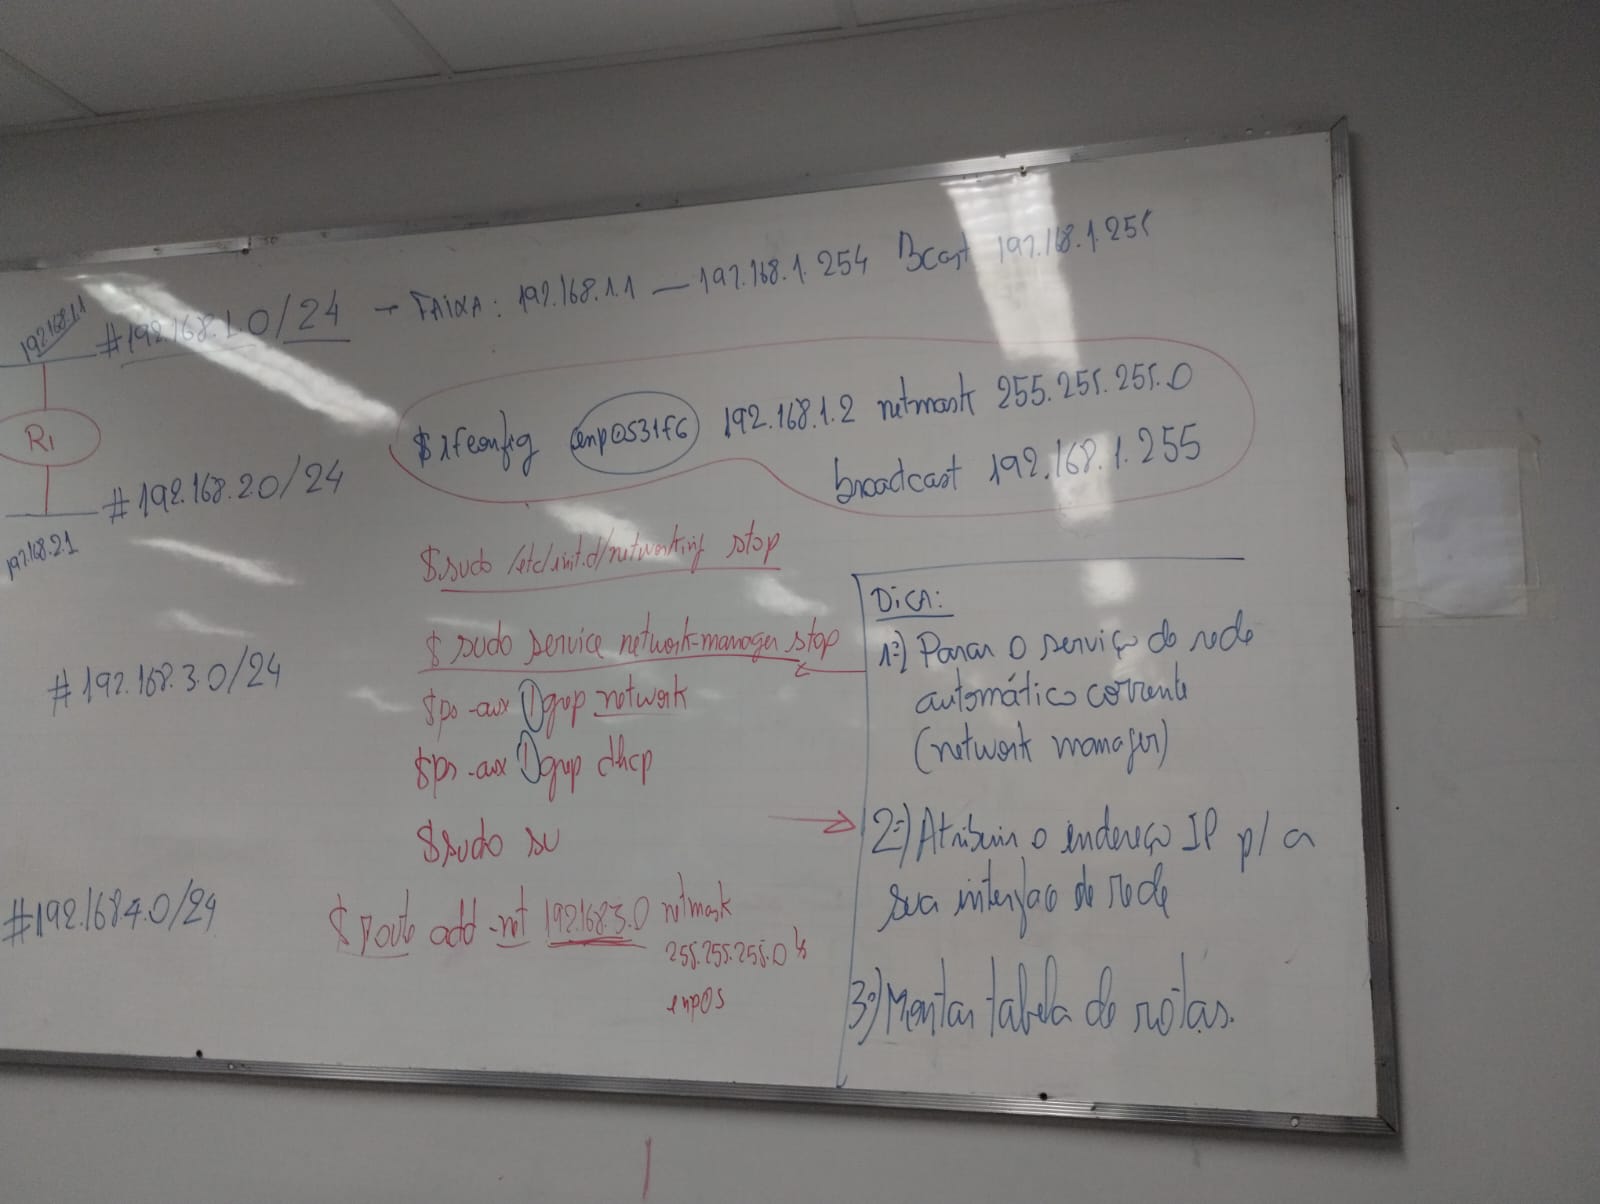 192.168.1.1
#192.168.1.0/24 → FAIXA: 192.168.1.1 — 192.168.1.254 Bcast 192.168.1.255
R1
$ ifconfig enp0s31f6 192.168.1.2 netmask 255.255.255.0
broadcast 192.168.1.255
#192.168.2.0/24
192.168.2.1
$ sudo /etc/init.d/networking stop
$ sudo service network-manager stop
$ps -aux | grep network
$ps -aux | grep dhcp
$sudo su
#192.168.3.0/24
#192.168.4.0/24
$ route add -net 192.168.3.0 netmask
255.255.255.0
enp0s
DICA:
1º) Parar o serviço de rede
automático corrente
(network manager)
2º) Atribuir o endereço IP p/ a
sua interface de rede
3º) Montar tabela de rotas.